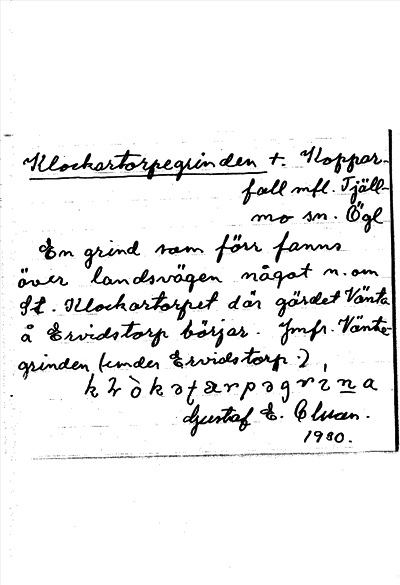 Klockartorpegrinden t. Koppar-
fall mfl. Tjäll-
mo sn. Ögl
En grind som förr fanns
över landsvägen något n. om
St. Klockartorpet där gärdet Vänta
å Ervidstorp börjar. Jmfr. Vänte-
grinden (under Ervidstorp.)
Gustaf E.
1980.